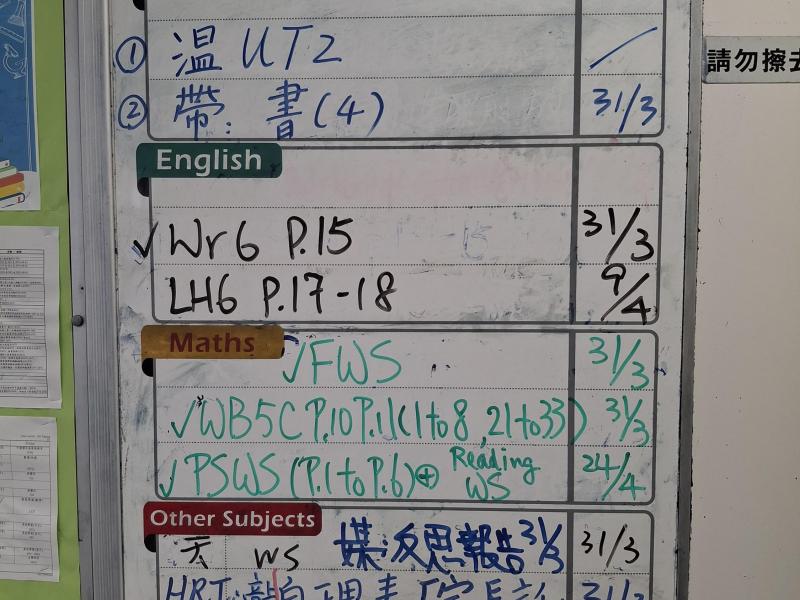 ① 溫 UT2 /
② 帶:書(4) 31/3
請勿擦去
English
✓ Wr6 P.15 31/3
LH6 P.17-18 9/4
Maths
✓ FWS 31/3
✓ WB5C P.10 P.11(1to8,21to33) 31/3
✓ PSWS (P.1 to P.6)⊕ Reading WS 24/4
Other Subjects
WS 媒:反思報告 31/3 31/3
HRT: 31/3